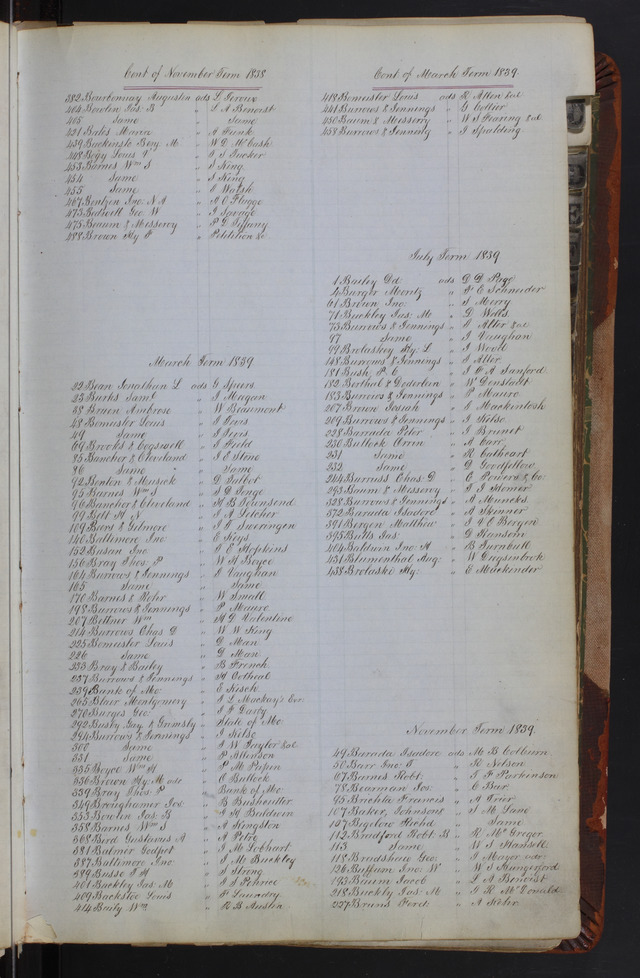 Cont of November Term 1838
382 Bourbonnay Augustin ads L Giroux
404 Bowlen Jas. B " L A Benoist
405 Same " Same
421 Bates Maria " A Funk
439 Backensto Benj. M " W D McCush
448 Bogy Louis V " A S Tucker
453 Barnes Wm S " S King
454 Same " S King
455 Same " C Walsh
467 Bentzen Jno. N A " A O Fluggo
473 Bedwell Geo. W " J Savage
475 Beaum & Messervy " P G Tiffany
488 Brown Hy P " Petition &c
March Term 1839
22 Bean Jonathan L ads G Spiers
23 Burks Saml " J Magan
38 Bruen Ambrose " W Beaumont
48 Bomeister Louis " J Provis
49 Same " J Provis
69 Brooks & Cogswell " J Field
85 Bancher & Cleveland " J C Stine
86 Same " Same
92 Benton & Musick " D Talbot
95 Barnes Wm S " S D Ponge
96 Bancher & Cleveland " H B Townsend
99 Bett M J " C A Fletcher
109 Beers & Gilmore " J T Sweringen
140 Baltimore Jno " E Keys
152 Busan Jno " J E Hopkins
156 Bray Thos. P " W H Boyce
164 Burrows & Jennings " S Vaughan
165 Same " Same
170 Barnes & Rohr " W Small
198 Burrows & Jennings " P Mauro
207 Bittner Wm " H G Valentine
214 Burrows Chas D " W W King
225 Bomeister Louis " D Man
226 Same " D Man
233 Bray & Bailey " B French
237 Burrows & Jennings " H Ostheal
239 Bank of Mo. " E Kisch
265 Blair Montgomery " J L Mackay's Exr.
270 Burges Geo. " J F Darby
292 Busby Guy & Gumsby " State of Mo
294 Burrows & Jennings " J Kelse
300 Same " J W Taylor &al
331 Same " P Allenson
335 Boyce Wm H " P M Pipen
336 Brown Hy. M adr " C Bullock
339 Bray Thos. P " Bank of Mo
349 Broughamer Jos " B Bushweiller
353 Bowlen Jas. B " J H Baldwin
358 Barnes Wm S " A Kingston
368 Bird Gustavus A " A Peter
381 Balmer Godfrot " J M Lobhart
387 Baltimore Jno " J M Buckley
389 Busse J H " S String
401 Buckley Jas. M " J S Pehrice
409 Backsloe Louis " F Launday
414 Baily Wm " R B Austin
Cont of March Term 1839.
418 Bomeister Louis ads R Allen &al
441 Burrows & Jennings " G Collier
450 Baum & Messervy " W S Dearing &al
458 Burrows & Jennings " J Spalding
July Term 1839
1 Bailey Dd ads D D Page
4 Burger Moritz " F E Schneider
61 Brown Jno. " S Merry
71 Buckley Jas. M " D Wells
73 Burrows & Jennings " S Alter &al
97 Same " J Vaughan
99 Brotaskey Hy. L " J Wooll
148 Burrows & Jennings " S Alter
181 Bush P. C " J & A Sanford
182 Berthul & Dederlein " W Denstadt
183 Burrows & Jennings " P Mauro
207 Brown Josiah " C Mackintosh
209 Burrows & Jennings " J Kelse
228 Barrada Peter " J Brunet
230 Bullock Orrin " A Carr
231 Same " R Cathcart
232 Same " D Goodfellow
244 Burruss Chas. D " C Powers & Co.
293 Baum & Messervy " J J Homer
328 Burrows & Jennings " A Muncks
372 Barada Isadore " A Skinner
391 Bergen Matthew " J & C Bergen
395 Butts Jas. " D Ransom
404 Baldwin Jno. H " B Turnbull
431 Blumenthal Aug. " W Grefenbrok
438 Brolaski Hy. " E Mackinder
November Term 1839.
49 Barrada Isadore ads M B Colburn
50 Barr Jno. T " R Nelson
67 Barnes Robt. " G F Parkinson
78 Bearman Jos. " C Bur
95 Brichta Francis " A Grier
107 Baker, Johnson " S M Lane
127 Bigelow Hiram " Same
112 Bradford Robt. B " R McGregor
113 Same " W S Hansell
118 Bradshaw Geo. " J Mager adr
136 Buffum Jno. W " W S Hungerford
193 Baum Jacob " L A Benoist
218 Buckley Jas. M " J R McDonald
227 Bruns Ferdt " A Kehr